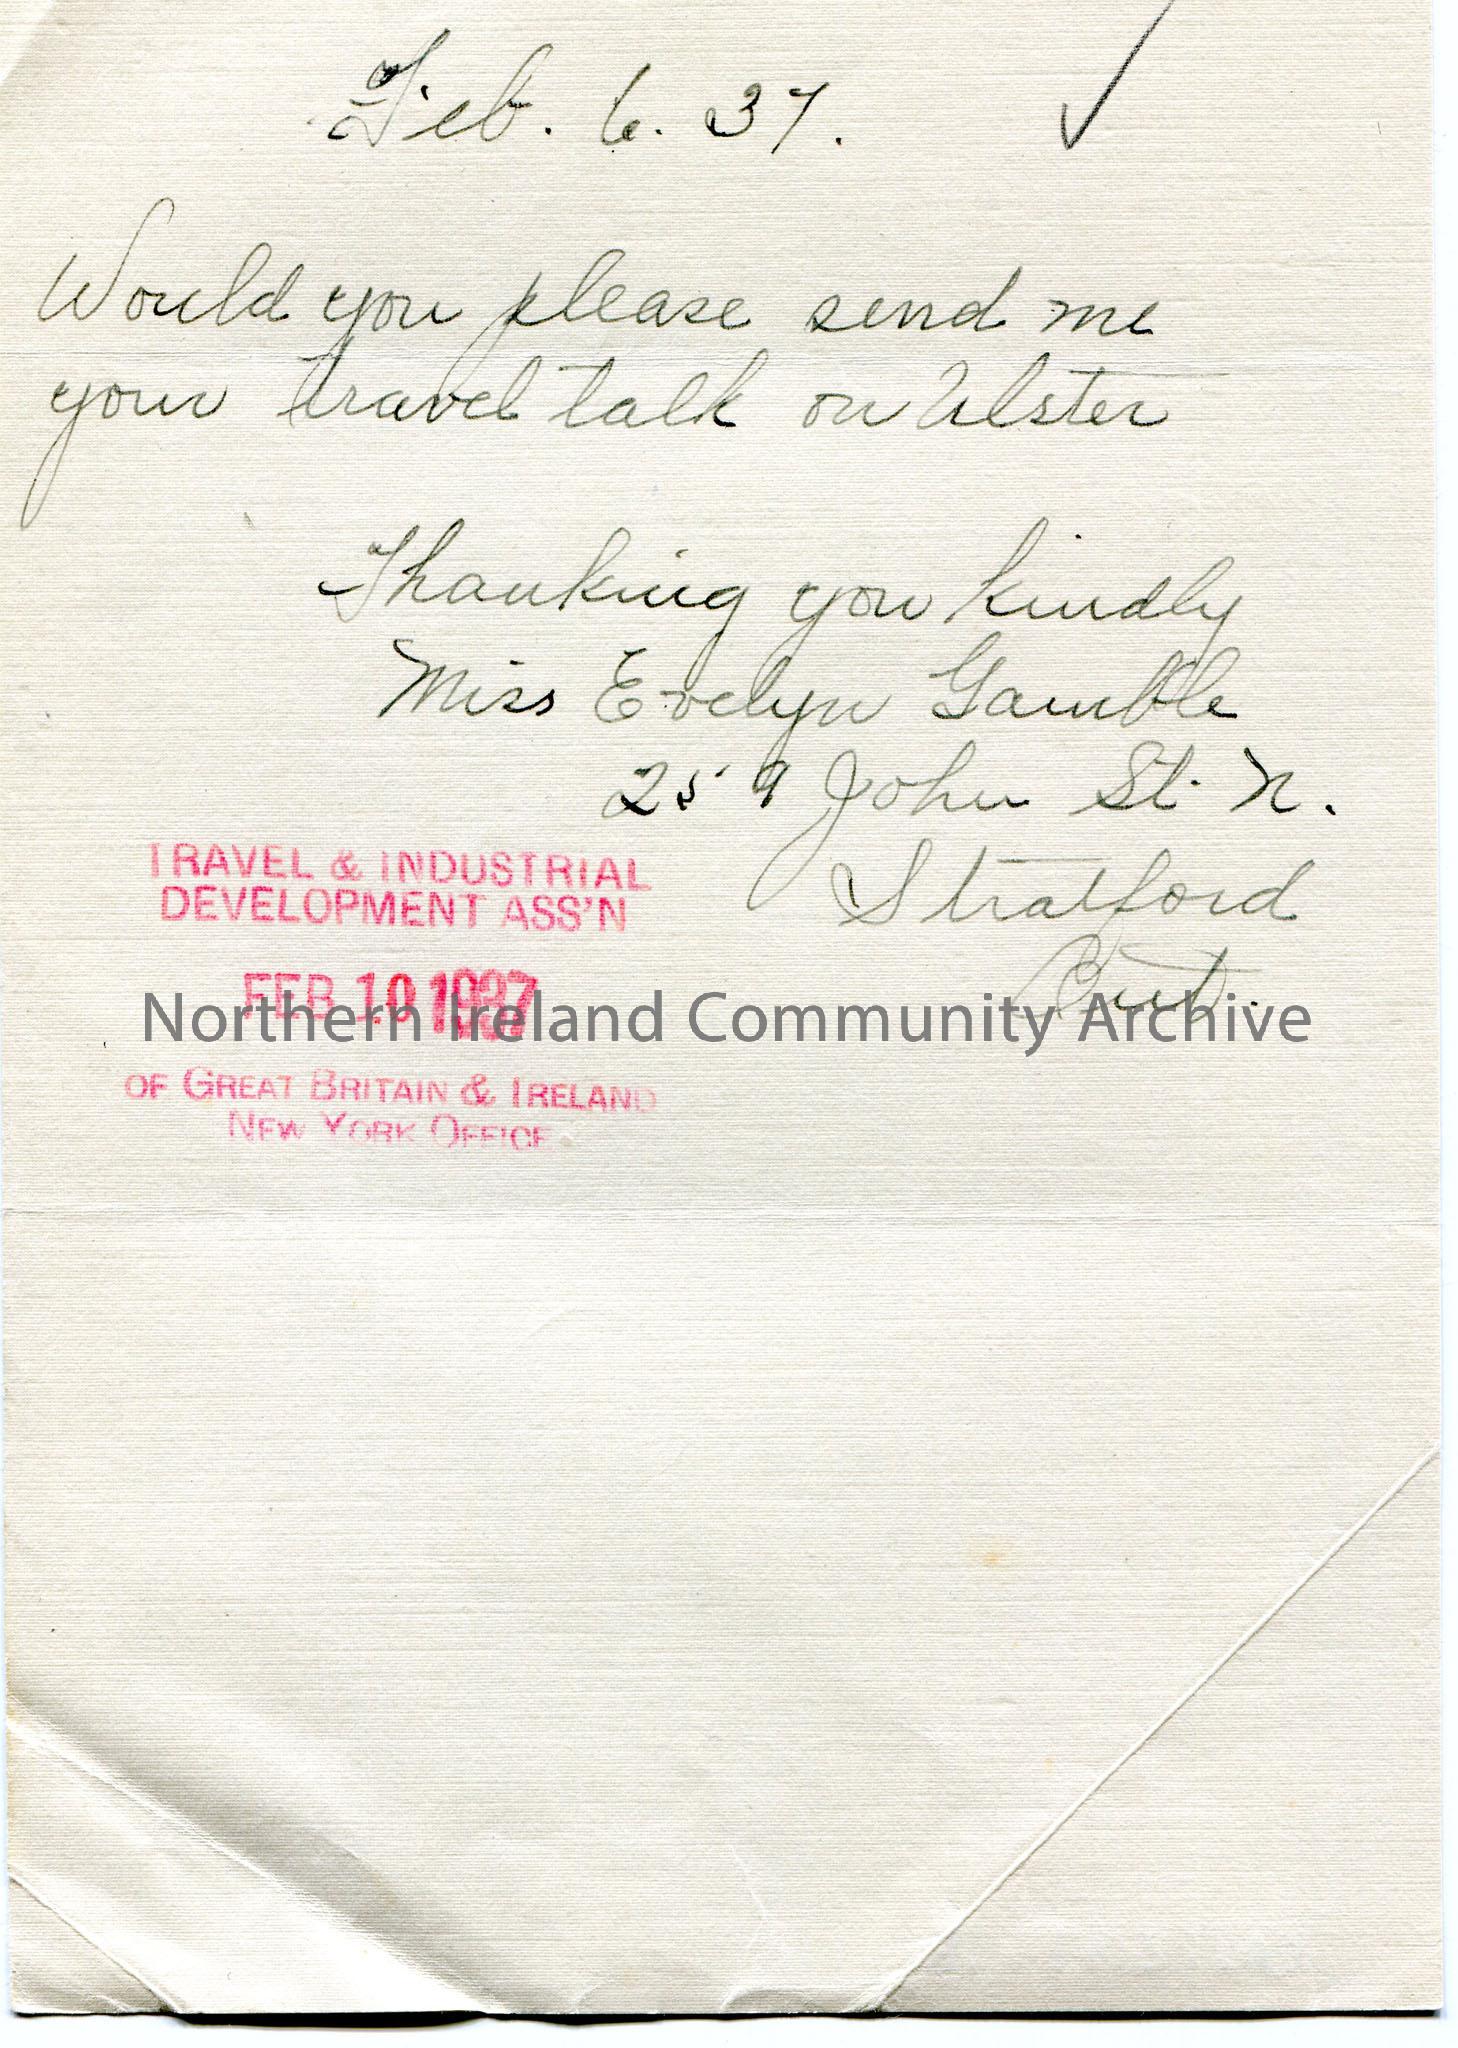 Feb. 6. 37.
Would you please send me
your travel talk on Ulster
Thanking you kindly
Miss Evelyn Gamble
259 John St. N.
Stratford
Ont.
TRAVEL & INDUSTRIAL
DEVELOPMENT ASS'N
FEB 10 1937
Northern Ireland Community Archive
OF GREAT BRITAIN & IRELAND
NEW YORK OFFICE